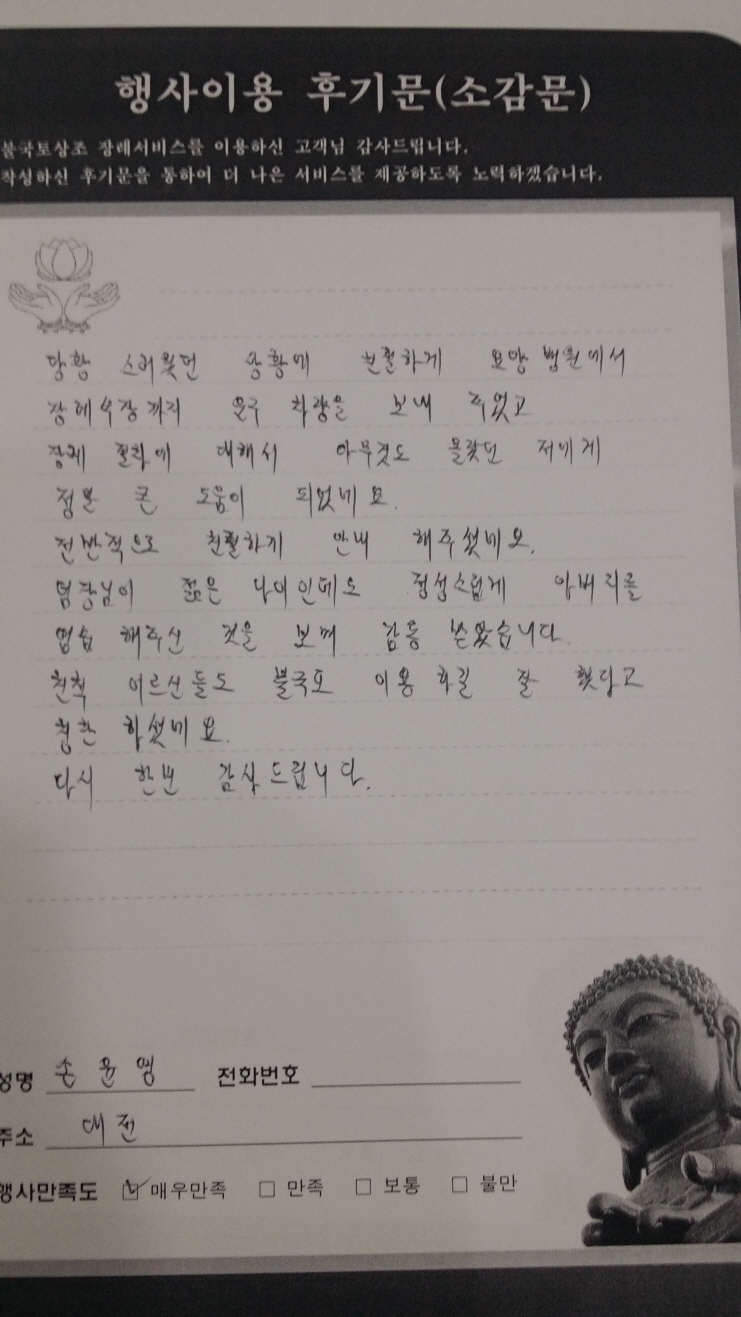 행사이용 후기문(소감문)
불국토상조 장례서비스를 이용하신 고객님 감사드립니다.
작성하신 후기문을 통하여 더 나은 서비스를 제공하도록 노력하겠습니다.
당황 스러웠던 상황에 친절하게 요양 병원에서
장례식장까지 운구 차량을 보내 주었고
장례 절차에 대해서 아무것도 몰랐던 저에게
정말 큰 도움이 되었네요.
전반적으로 친절하게 안내 해주셨네요.
팀장님이 젊은 나이인데도 정성스럽게 아버지를
염습 해주신 것을 보며 감동 받았습니다.
친척 어르신들도 불국토 이용 하길 잘 했다고
칭찬 하셨네요.
다시 한번 감사드립니다.
성명 손윤영 전화번호
주소 대전
행사만족도 ☑ 매우만족 □ 만족 □ 보통 □ 불만